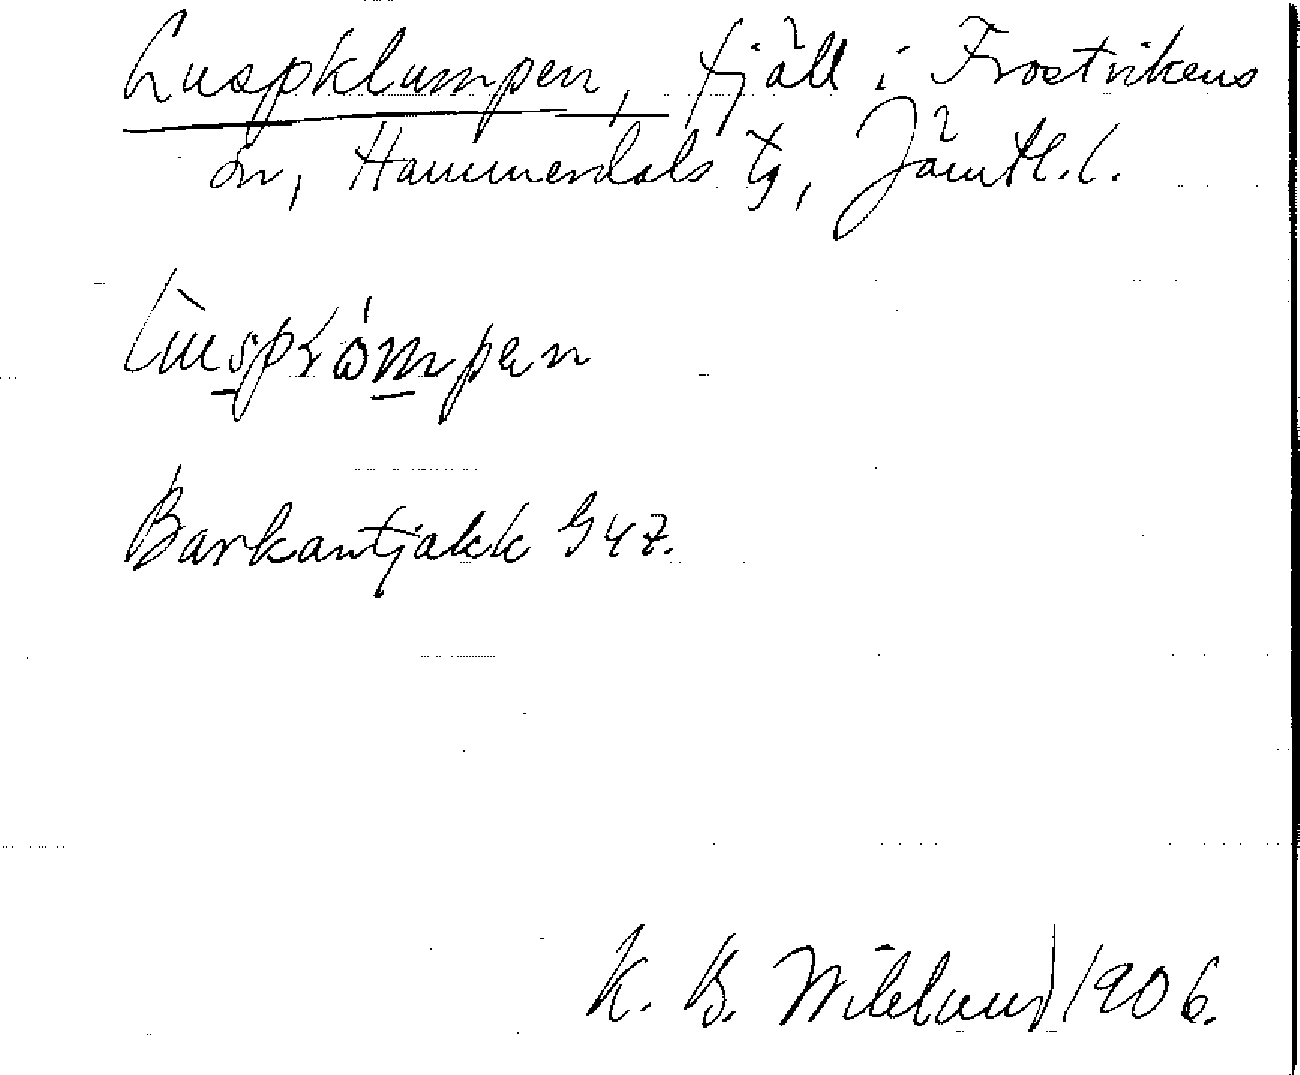 Luspklumpen, fjäll i Frostvikens
sn, Hammerdals tg, Jämtl. l.
Barkantjakk 947.
K. B. Wiklund 1906.